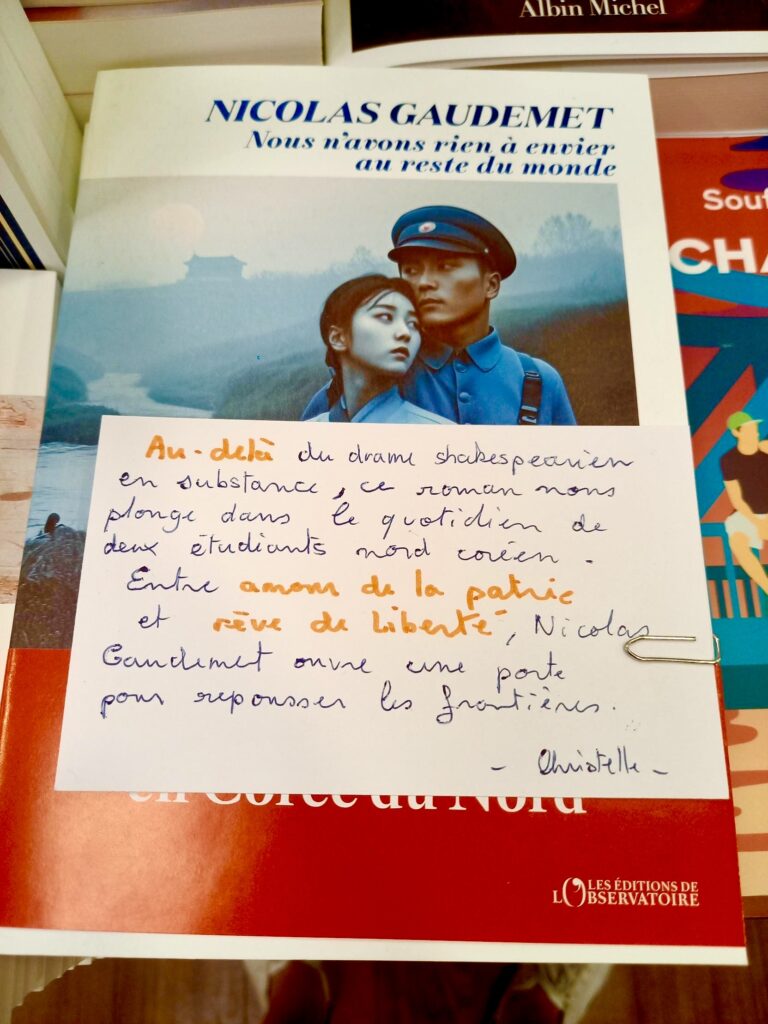 Albin Michel
NICOLAS GAUDEMET
Nous n'avons rien à envier
au reste du monde
Souf
CHA
Au-delà du drame shakespearien
en substance, ce roman nous
plonge dans le quotidien de
deux étudiants nord coréen.
Entre amour de la patrie
et rêve de liberté, Nicolas
Gaudemet ouvre une porte
pour repousser les frontières.
- Christelle -
en Corée du Nord
LES ÉDITIONS DE
L'OBSERVATOIRE